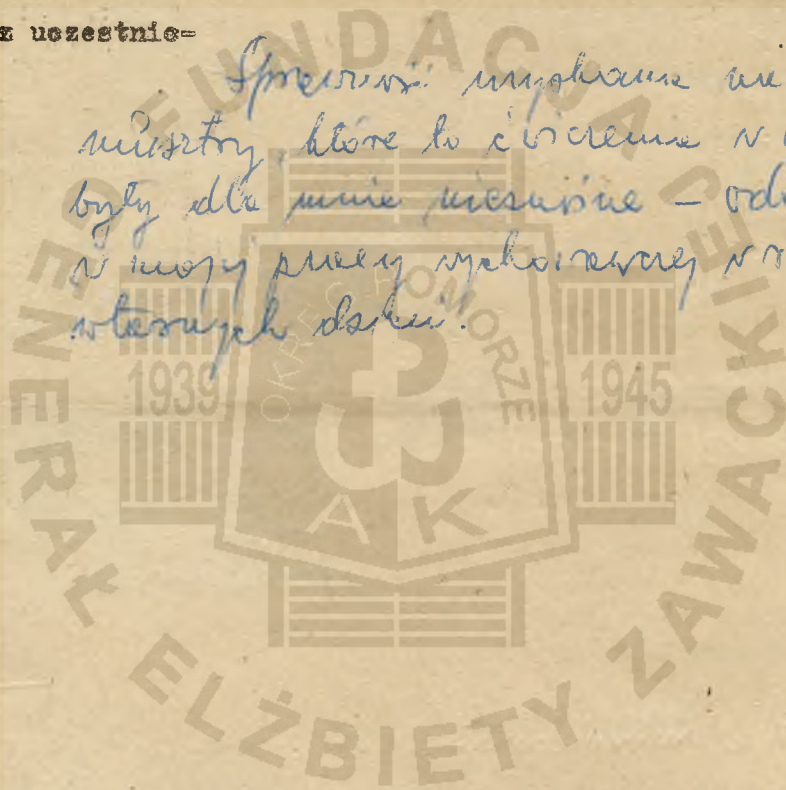 z uczestnic=
Sprawność uzyskana
musztry, które to ćwiczenia w
były dla mnie nieznośne –
w mojej pracy wychowawczej w
własnych dzieci.
FUNDACJA GENERAŁ ELŻBIETY ZAWACKIEJ
OKRĘG POMORZE
1939 1945
AK